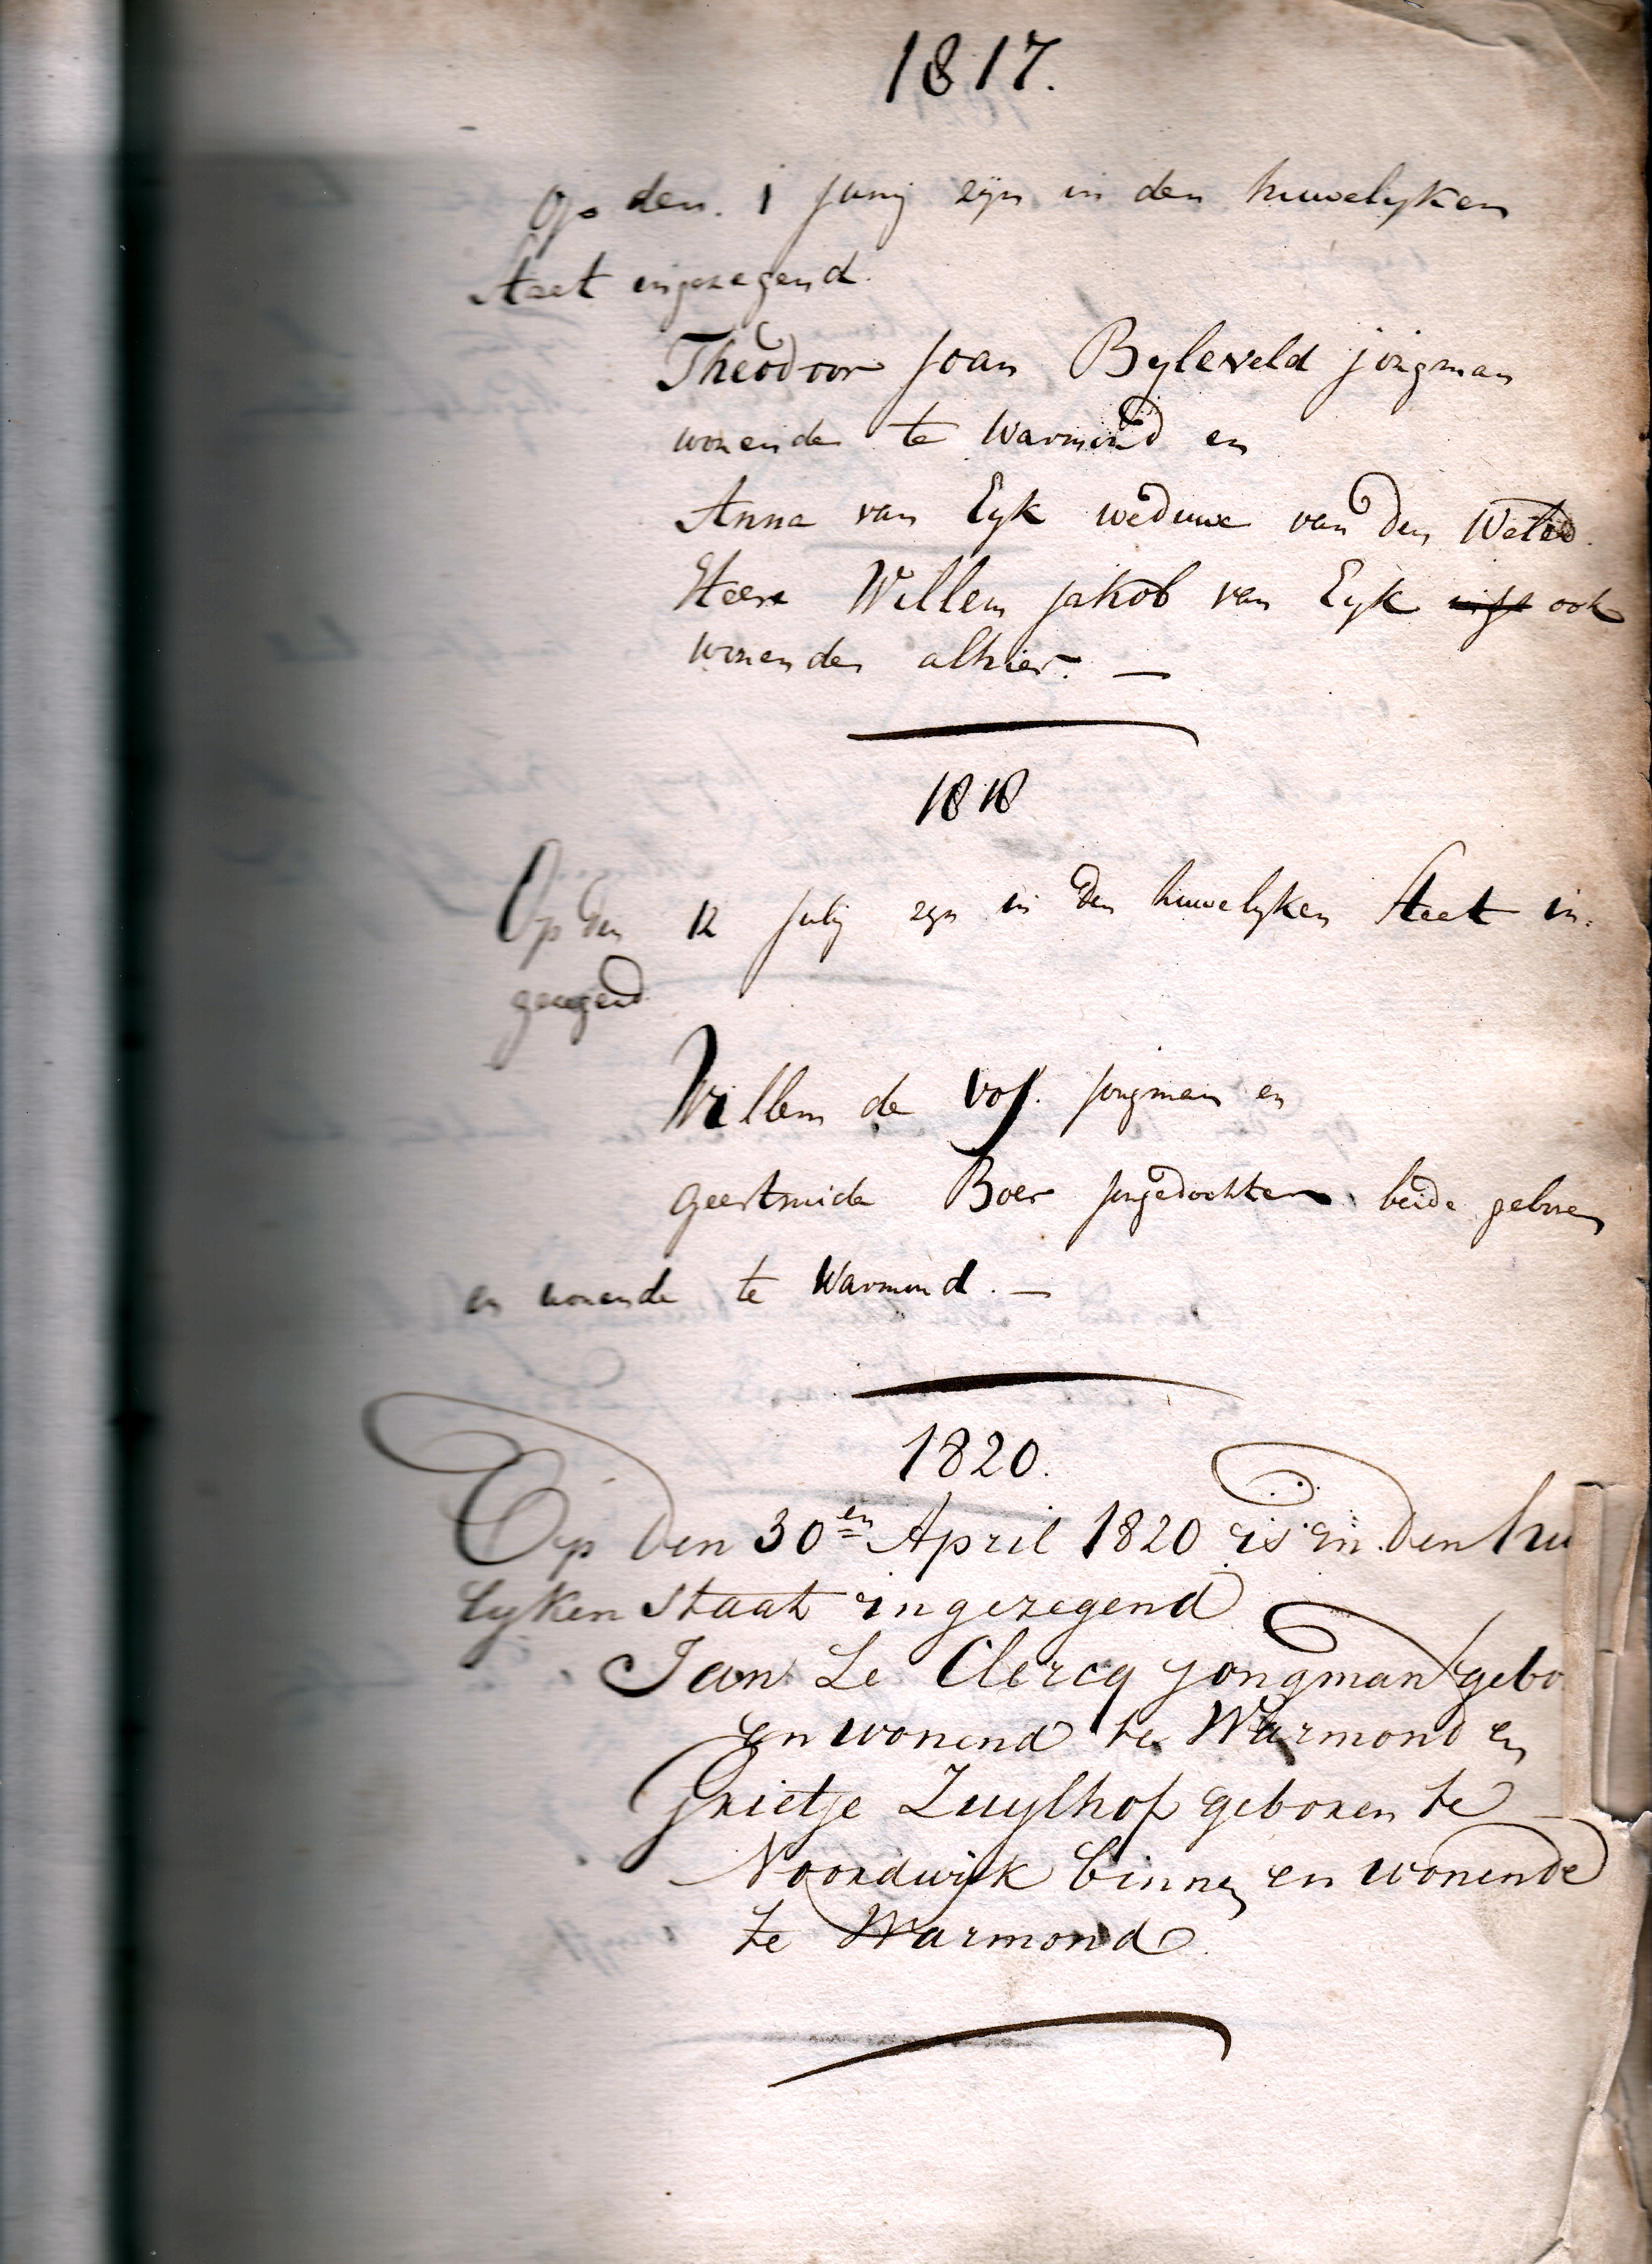 1817.
Op den 1 Junij zijn in den huwelijken
Staet ingezegend.
Theodoor Joan Byleveld jongman
wonende te Warmond en
Anna van Eyk weduwe van den
Heere Willem Jakob van Eyk ook
wonende alhier. —
1818
Op den 12 Julij zijn in den huwelyken Staet in-
gezegend
Willem de Vos. jongman en
geertruida Boer jongedochter beide geboren
en wonende te Warmond. —
1820.
Op den 30en April 1820 is in den hu
lyken Staat ingezegend
Jan Le Clercq jongman gebo
en wonend te Warmond en
Grietje Zuylhof geboren te
Noordwijk binnen en wonende
te Warmond.